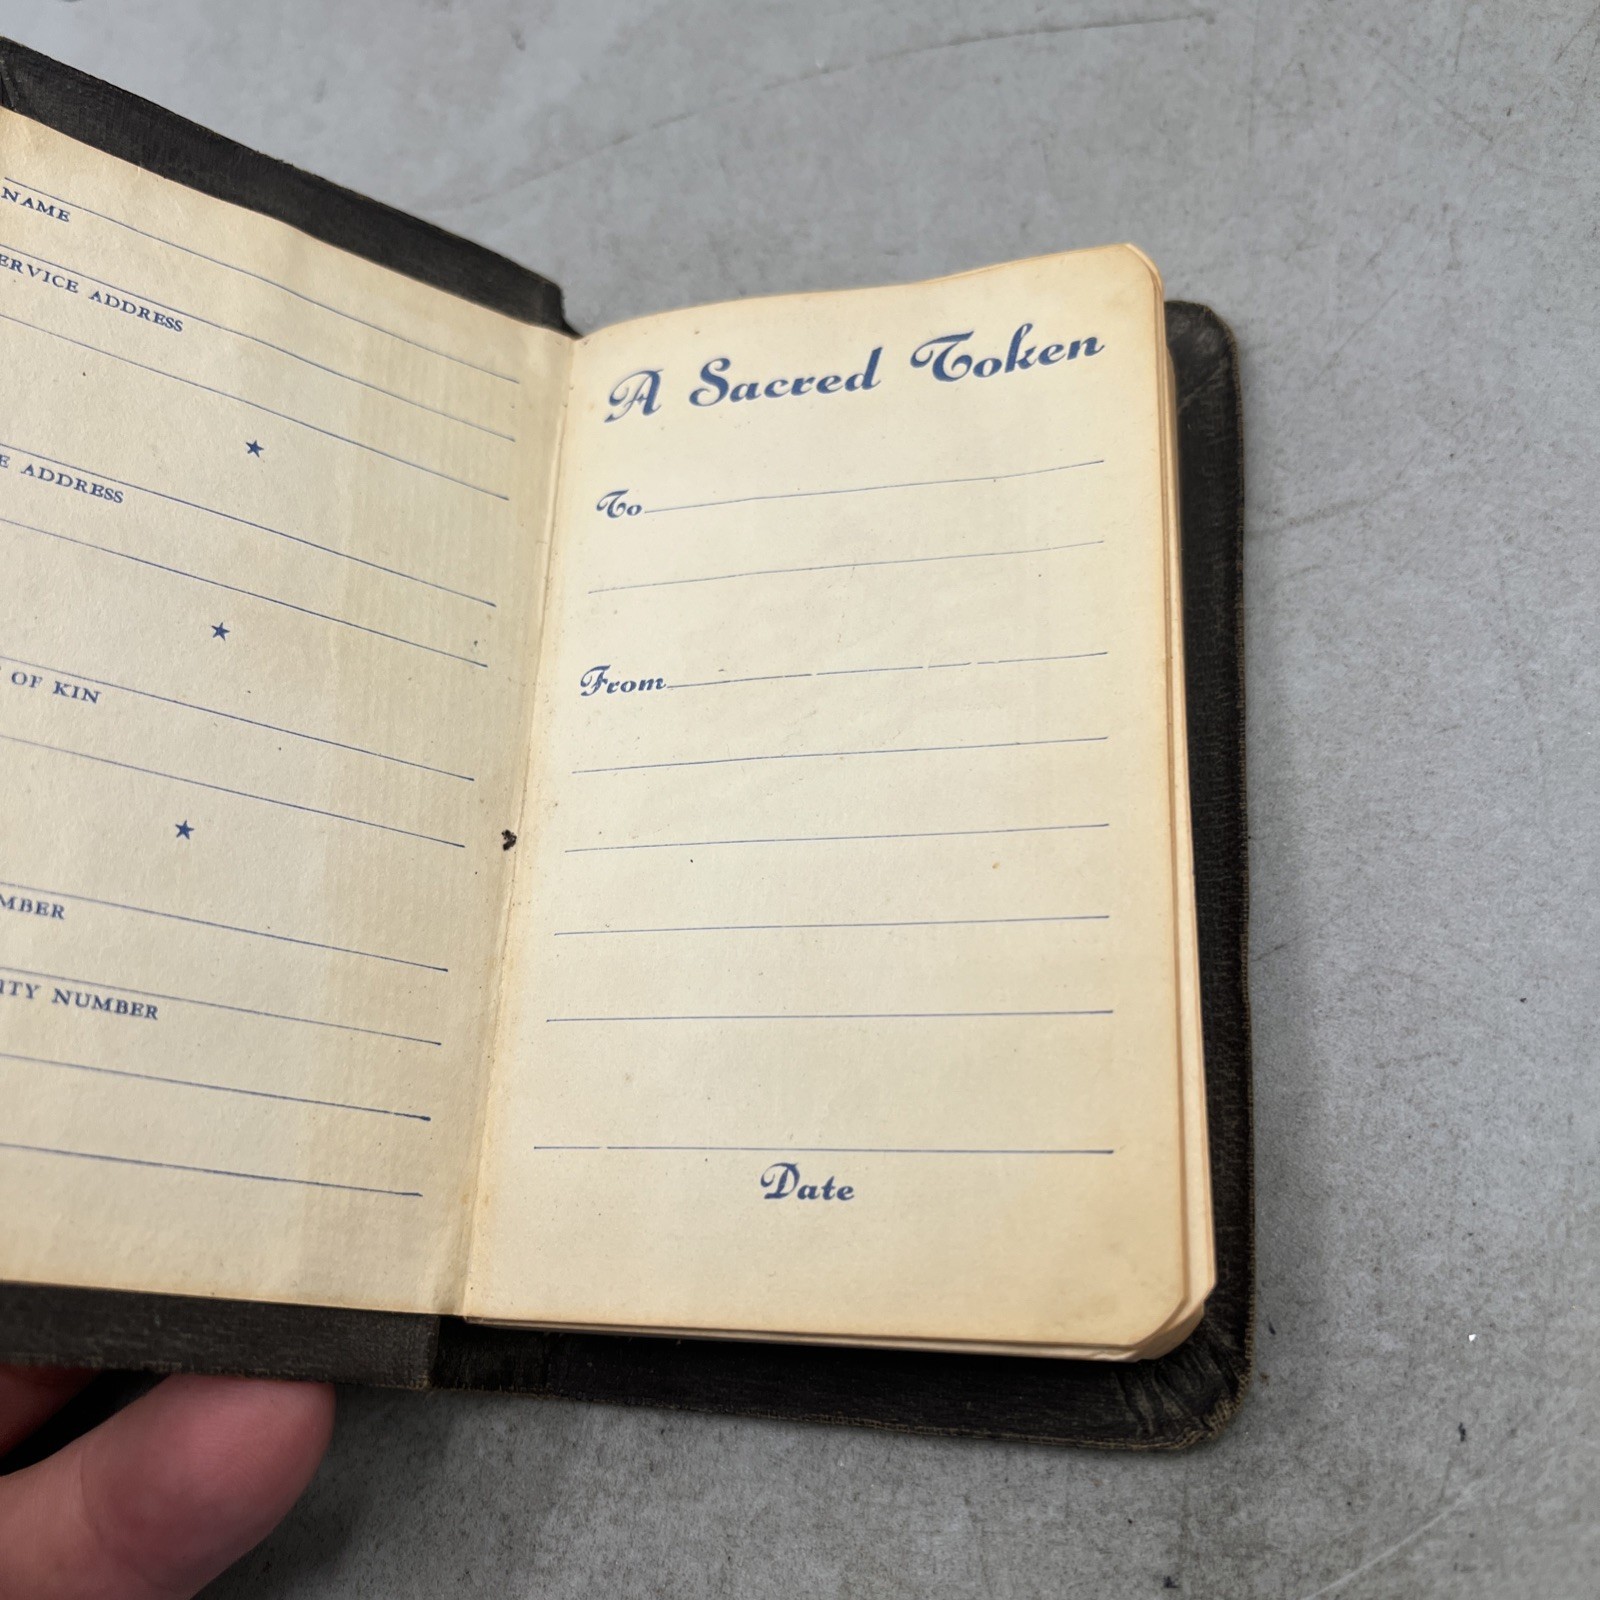 NAME
ERVICE ADDRESS
E ADDRESS
OF KIN
MBER
ITY NUMBER
A Sacred Token
To
From
Date